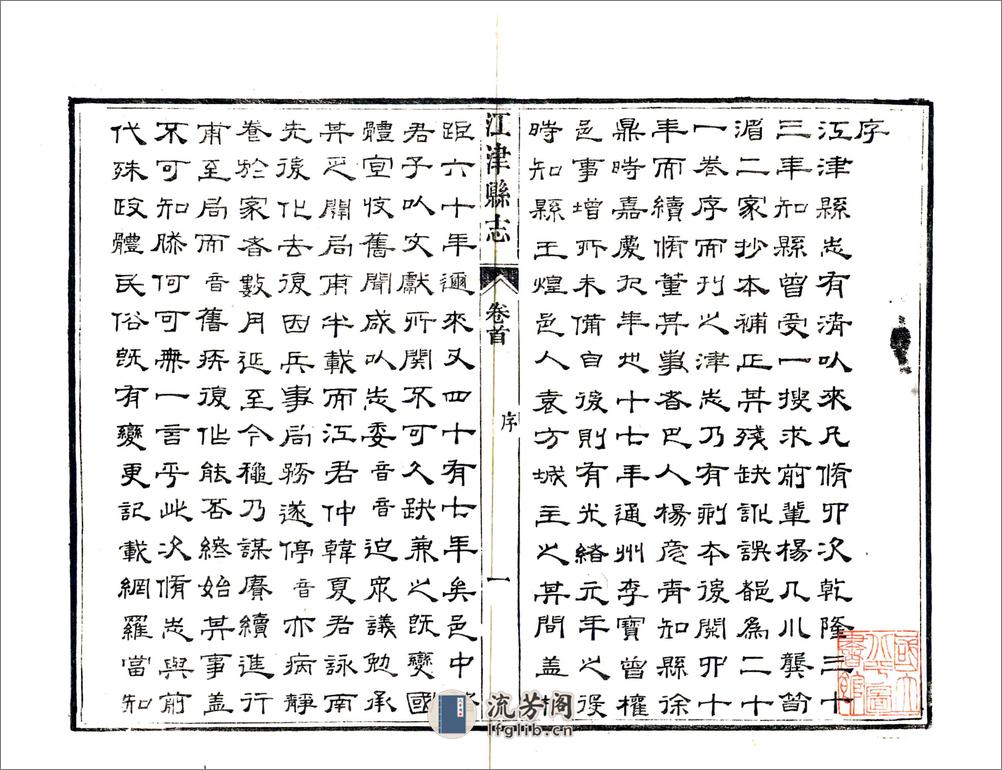 序
江津縣志有淸以來凡脩四次乾隆三十
三年知縣曾受一搜求前輩楊几川龔笥
湄二家抄本補正其殘缺訛誤都為二十
一卷序而刊之津志乃有刻本後閱四十
年而續脩董其事者巴人楊彥青知縣徐
鼎時嘉慶九年也十七年通州李寶曾權
邑事增所未備自後則有光緒元年之役
時知縣王煌邑人袁方城主之其間蓋
江津縣志 卷首 序 一
距六十年邇來又四十有七年矣邑中
君子以文獻所關不可久缺兼之旣變國
體宜收舊聞咸以志委音音迫眾議勉承
其乏開局甫半載而江君仲韓夏君詠南
先後化去復因兵事局務遂停音亦病靜
養於家者數月延至今龝乃謀賡續進行
甫至局而音舊疾復作能否終始其事蓋
不可知何可無一言乎此次脩志與前
代殊政體民俗旣有變更記載網羅當知
國立北平圖書館
流芳阁
lfglib.cn